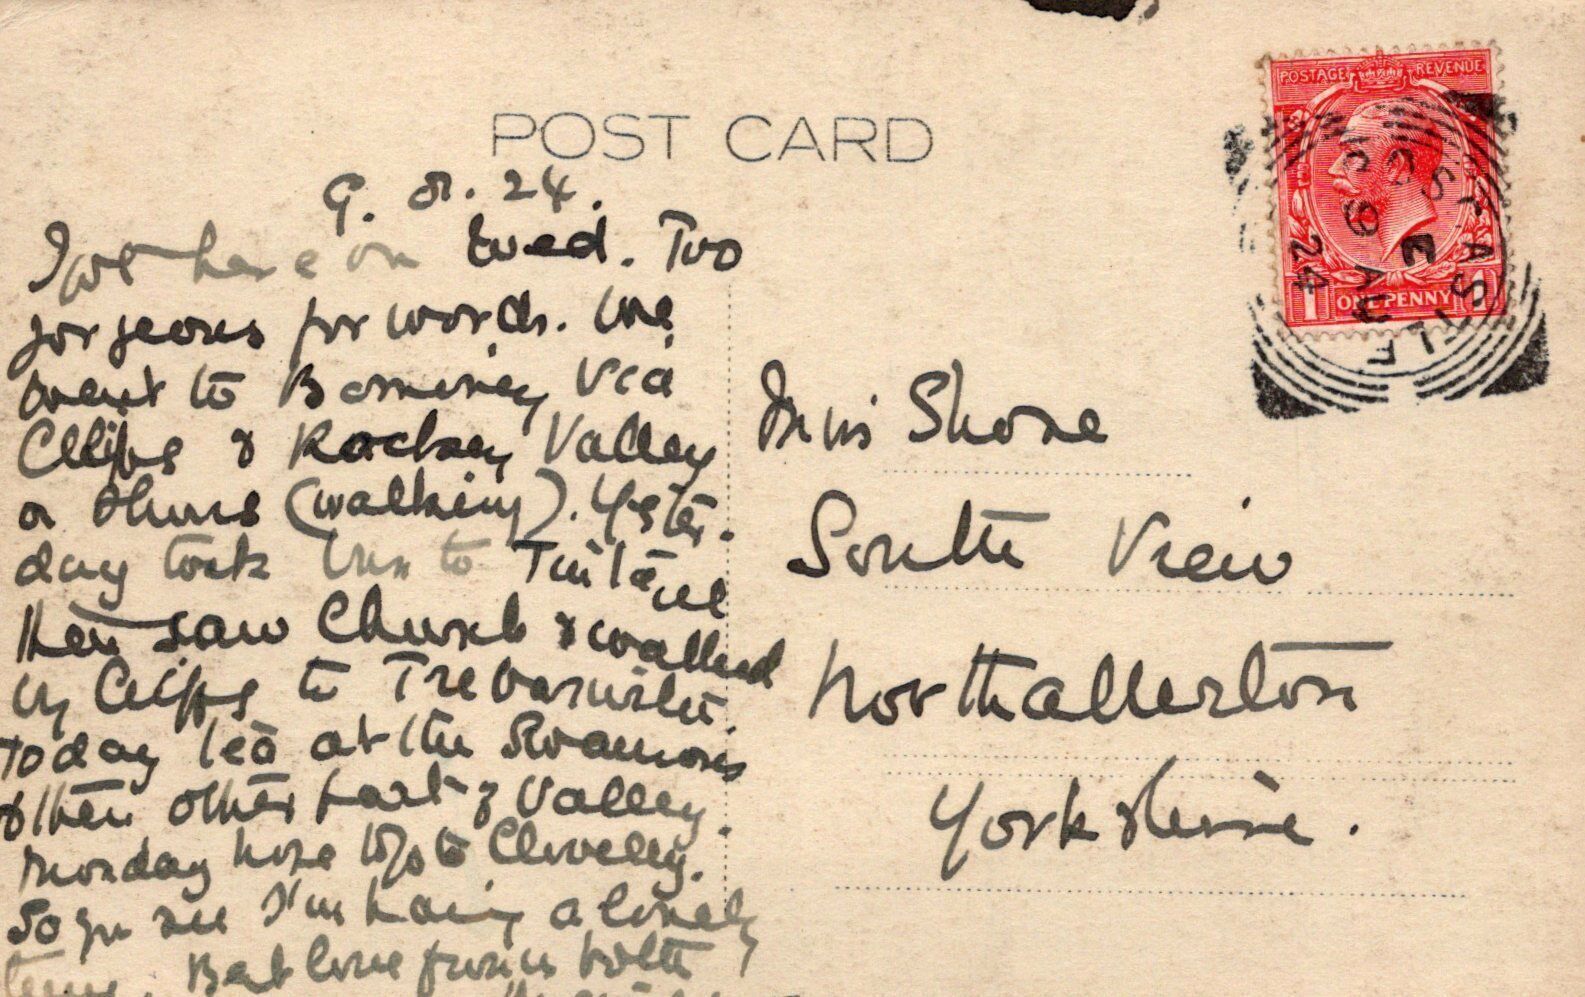 POST CARD
9. 8. 24.
Got here on Wed. Too
gorgeous for words. We
went to Bossiney via
Cliffs & Rocky Valley
on Thurs (walking). Yester-
day took bus to Tintagel
then saw Church & walked
by Cliffs to Trebarwith.
Today tea at the
& then other part of Valley.
Monday hope to go to Clovelly.
So you see I'm having a lovely
time. Best love from us both
POSTAGE REVENUE
1 ONE PENNY 1
AU 9
24
Miss Shone
South View
Northallerton
Yorkshire.